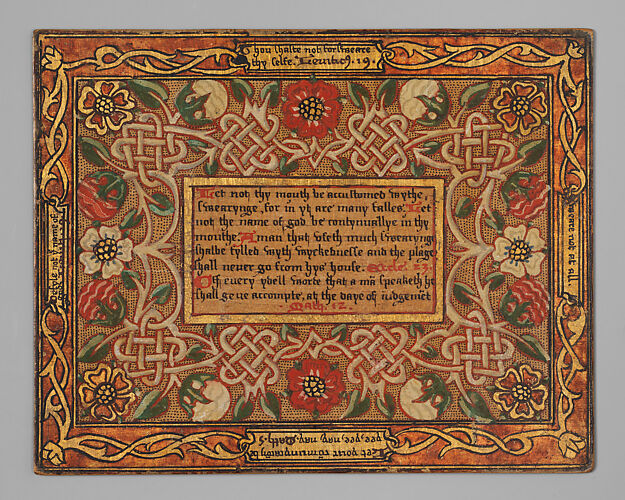 Thou shalte not forsweare
thy selfe. Leuit. 19.
Let not thy mouth be accustomed wythe
swearynge, for in yt are many falles. Let
not the name of god be contynuallye in thy
mouthe. A man that vseth much swearyng
shalbe fylled wyth wyckednesse and the plage
shall never go from hys house. Eccle. 23.
Off euery ydell worte that a mā speaketh he
shall geue accompte, at the daye of iudgemēt
Math. 12.
Sweare not at all.
yee, yee, nay, nay. Math. 5
Let your communycacyō be
name of